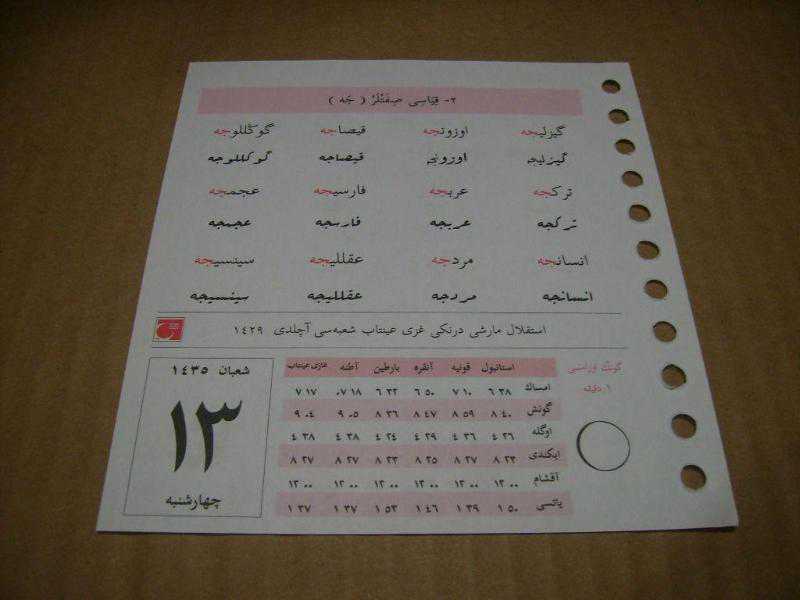 ٢- قِيَاسِی صِفَتْلَرْ ( جَه )
گیزلیجه اوزونجه قیصاجه گوڭللوجه
گیزلیجه اوزونجه قیصاجه گوڭللوجه
تركجه عربجه فارسیجه عجمجه
تركجه عربجه فارسجه عجمجه
انسانجه مردجه عقللیجه سینسیجه
انسانجه مردجه عقللیجه سینسیجه
استقلال مارشی درنكی غزی عینتاب شعبه‌سی آچلدی ١٤٢٩
شعبان ١٤٣٥
١٣
چهارشنبه
گونك اوزامسی
١ دقیقه
استانبول قونیه آنقره بارطین آطنه غازی عینتاب
امساك ٦ ٣٨ ٧ ١٠ ٦ ٥٠ ٦ ٣٢ ٠٧ ١٨ ٧ ١٧
گونش ٨ ٤٠ ٨ ٥٩ ٨ ٤٧ ٨ ٣٦ ٩ ٠٥ ٩ ٠٤
اوگله ٤ ٢٦ ٤ ٣٦ ٤ ٢٩ ٤ ٢٤ ٤ ٣٨ ٤ ٣٨
ایكندی ٨ ٢٣ ٨ ٢٧ ٨ ٢٥ ٨ ٢٣ ٨ ٢٧ ٨ ٢٧
آقشام ١٢ ٠٠ ١٢ ٠٠ ١٢ ٠٠ ١٢ ٠٠ ١٢ ٠٠ ١٢ ٠٠
یاتسی ١ ٥٠ ١ ٣٩ ١ ٤٦ ١ ٥٣ ١ ٣٧ ١ ٣٧